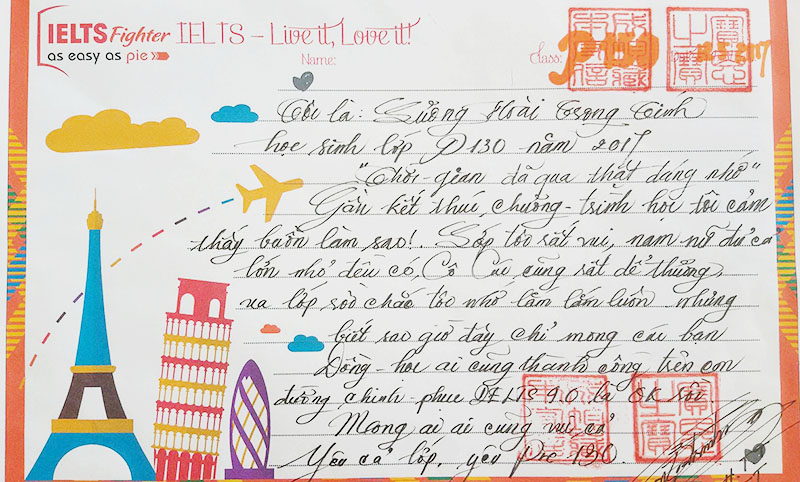 IELTS Fighter
as easy as pie
IELTS - Live it, Love it!
Name:
Class: P130
2017
Tôi là: Lương Hoài Trọng Tính
học sinh lớp P130 năm 2017
"Thời-gian đã qua thật đáng nhớ"
Gần kết thúc chương-trình học tôi cảm
thấy buồn làm sao!. Lớp tôi rất vui, nam nữ đủ cả
lớn nhỏ đều có, Cô Cúc cũng rất dể thương,
xa lớp rồi chắc tôi nhớ lắm lắm luôn nhưng
biết sao giờ đây chỉ mong các bạn
Đồng-học ai cũng thành công trên con
đường chinh-phục IELTS 9.0 là OK rồi
Mong ai ai cũng vui cả
Yêu cả lớp, yêu Pre 130.